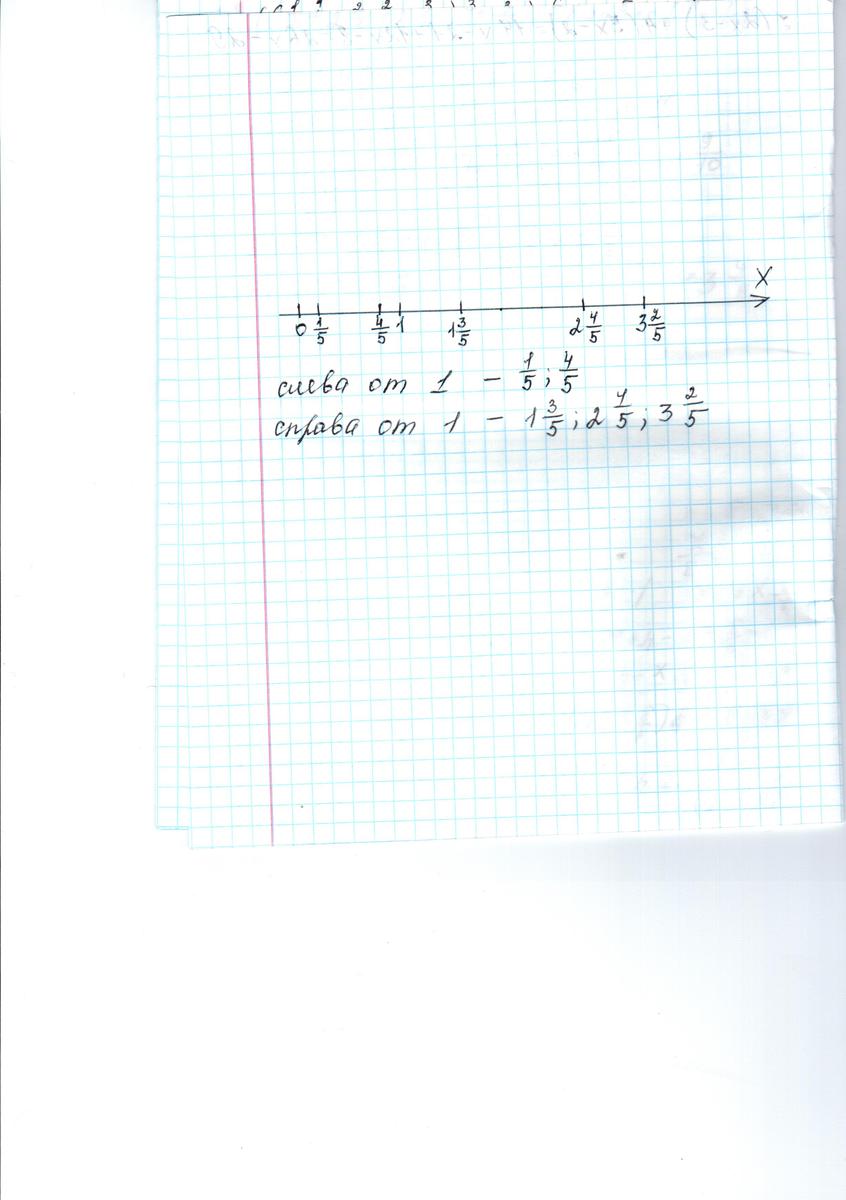 X
0 1/5 4/5 1 1 3/5 2 4/5 3 2/5
слева от 1 – 1/5; 4/5
справа от 1 – 1 3/5; 2 4/5; 3 2/5